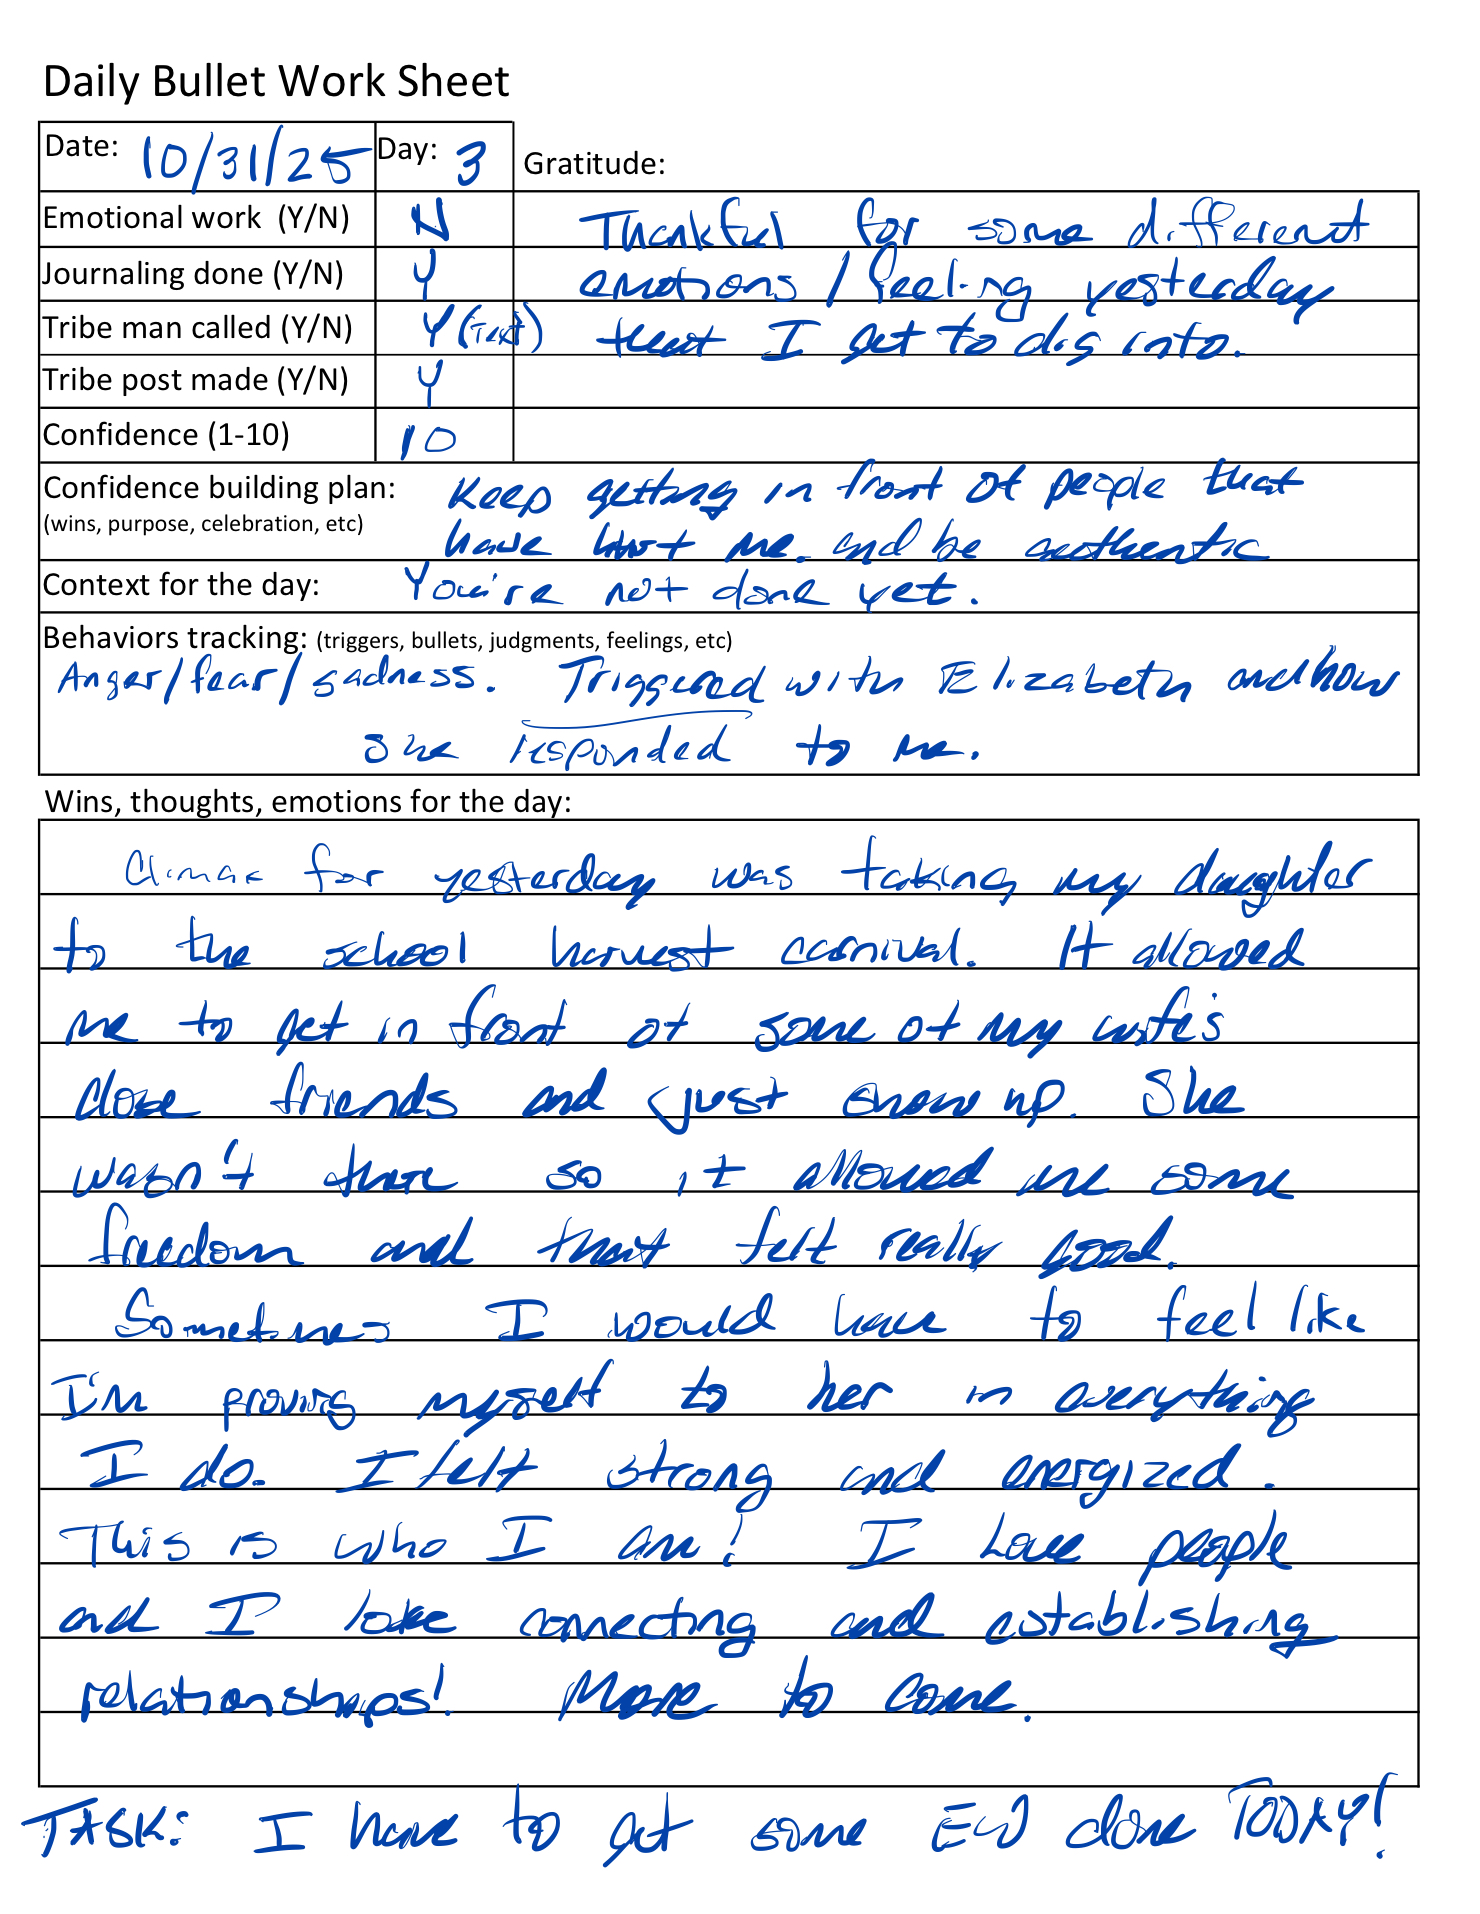 Daily Bullet Work Sheet
Date: 10/31/25 Day: 3 Gratitude:
Emotional work (Y/N) N Thankful for some different
Journaling done (Y/N) Y emotions / feeling yesterday
Tribe man called (Y/N) Y (Text) that I get to dig into.
Tribe post made (Y/N) Y
Confidence (1-10) 10
Confidence building plan: Keep getting in front of people that
(wins, purpose, celebration, etc) have hurt me. and be authentic
Context for the day: You're not done yet.
Behaviors tracking: (triggers, bullets, judgments, feelings, etc)
Anger/fear/sadness. Triggered with Elizabeth and how
she responded to me.
Wins, thoughts, emotions for the day:
Climax for yesterday was taking my daughter
to the school harvest carnival. It allowed
me to get in front of some of my wife's
close friends and just show up. She
wasn't there so it allowed me some
freedom and that felt really good.
Sometimes I would have to feel like
I'm proving myself to her in everything
I do. I felt strong and energized.
This is who I am! I Love people
and I love connecting and establishing
relationships! More to come.
TASK: I have to get some EW done TODAY!